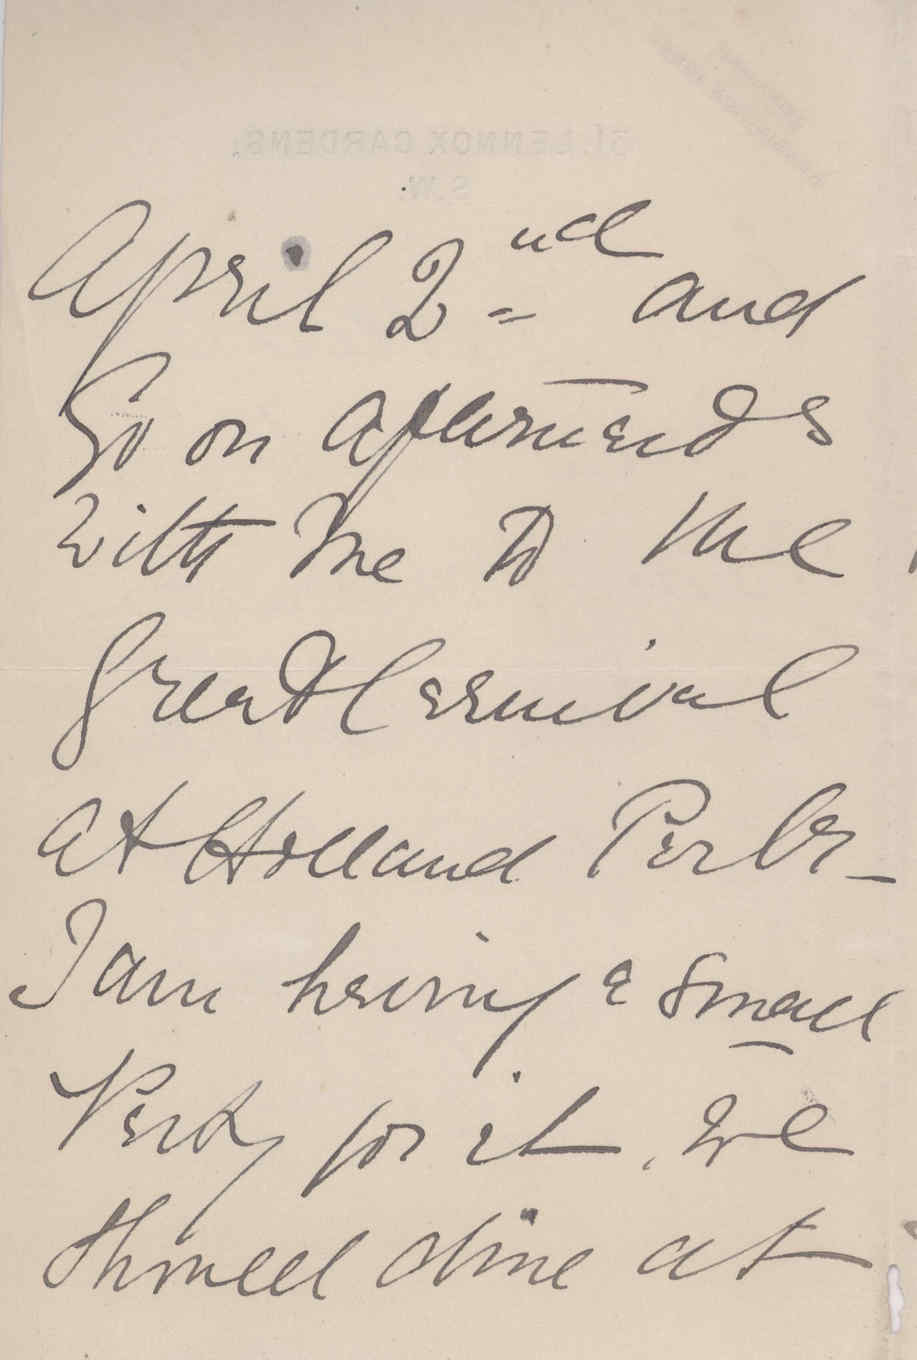 31, LENNOX GARDENS,
S.W.
April 2nd and
Go on afterwards
with me to the
great Carnival
at Holland Park –
I am having a small
Party for it, we
should dine at